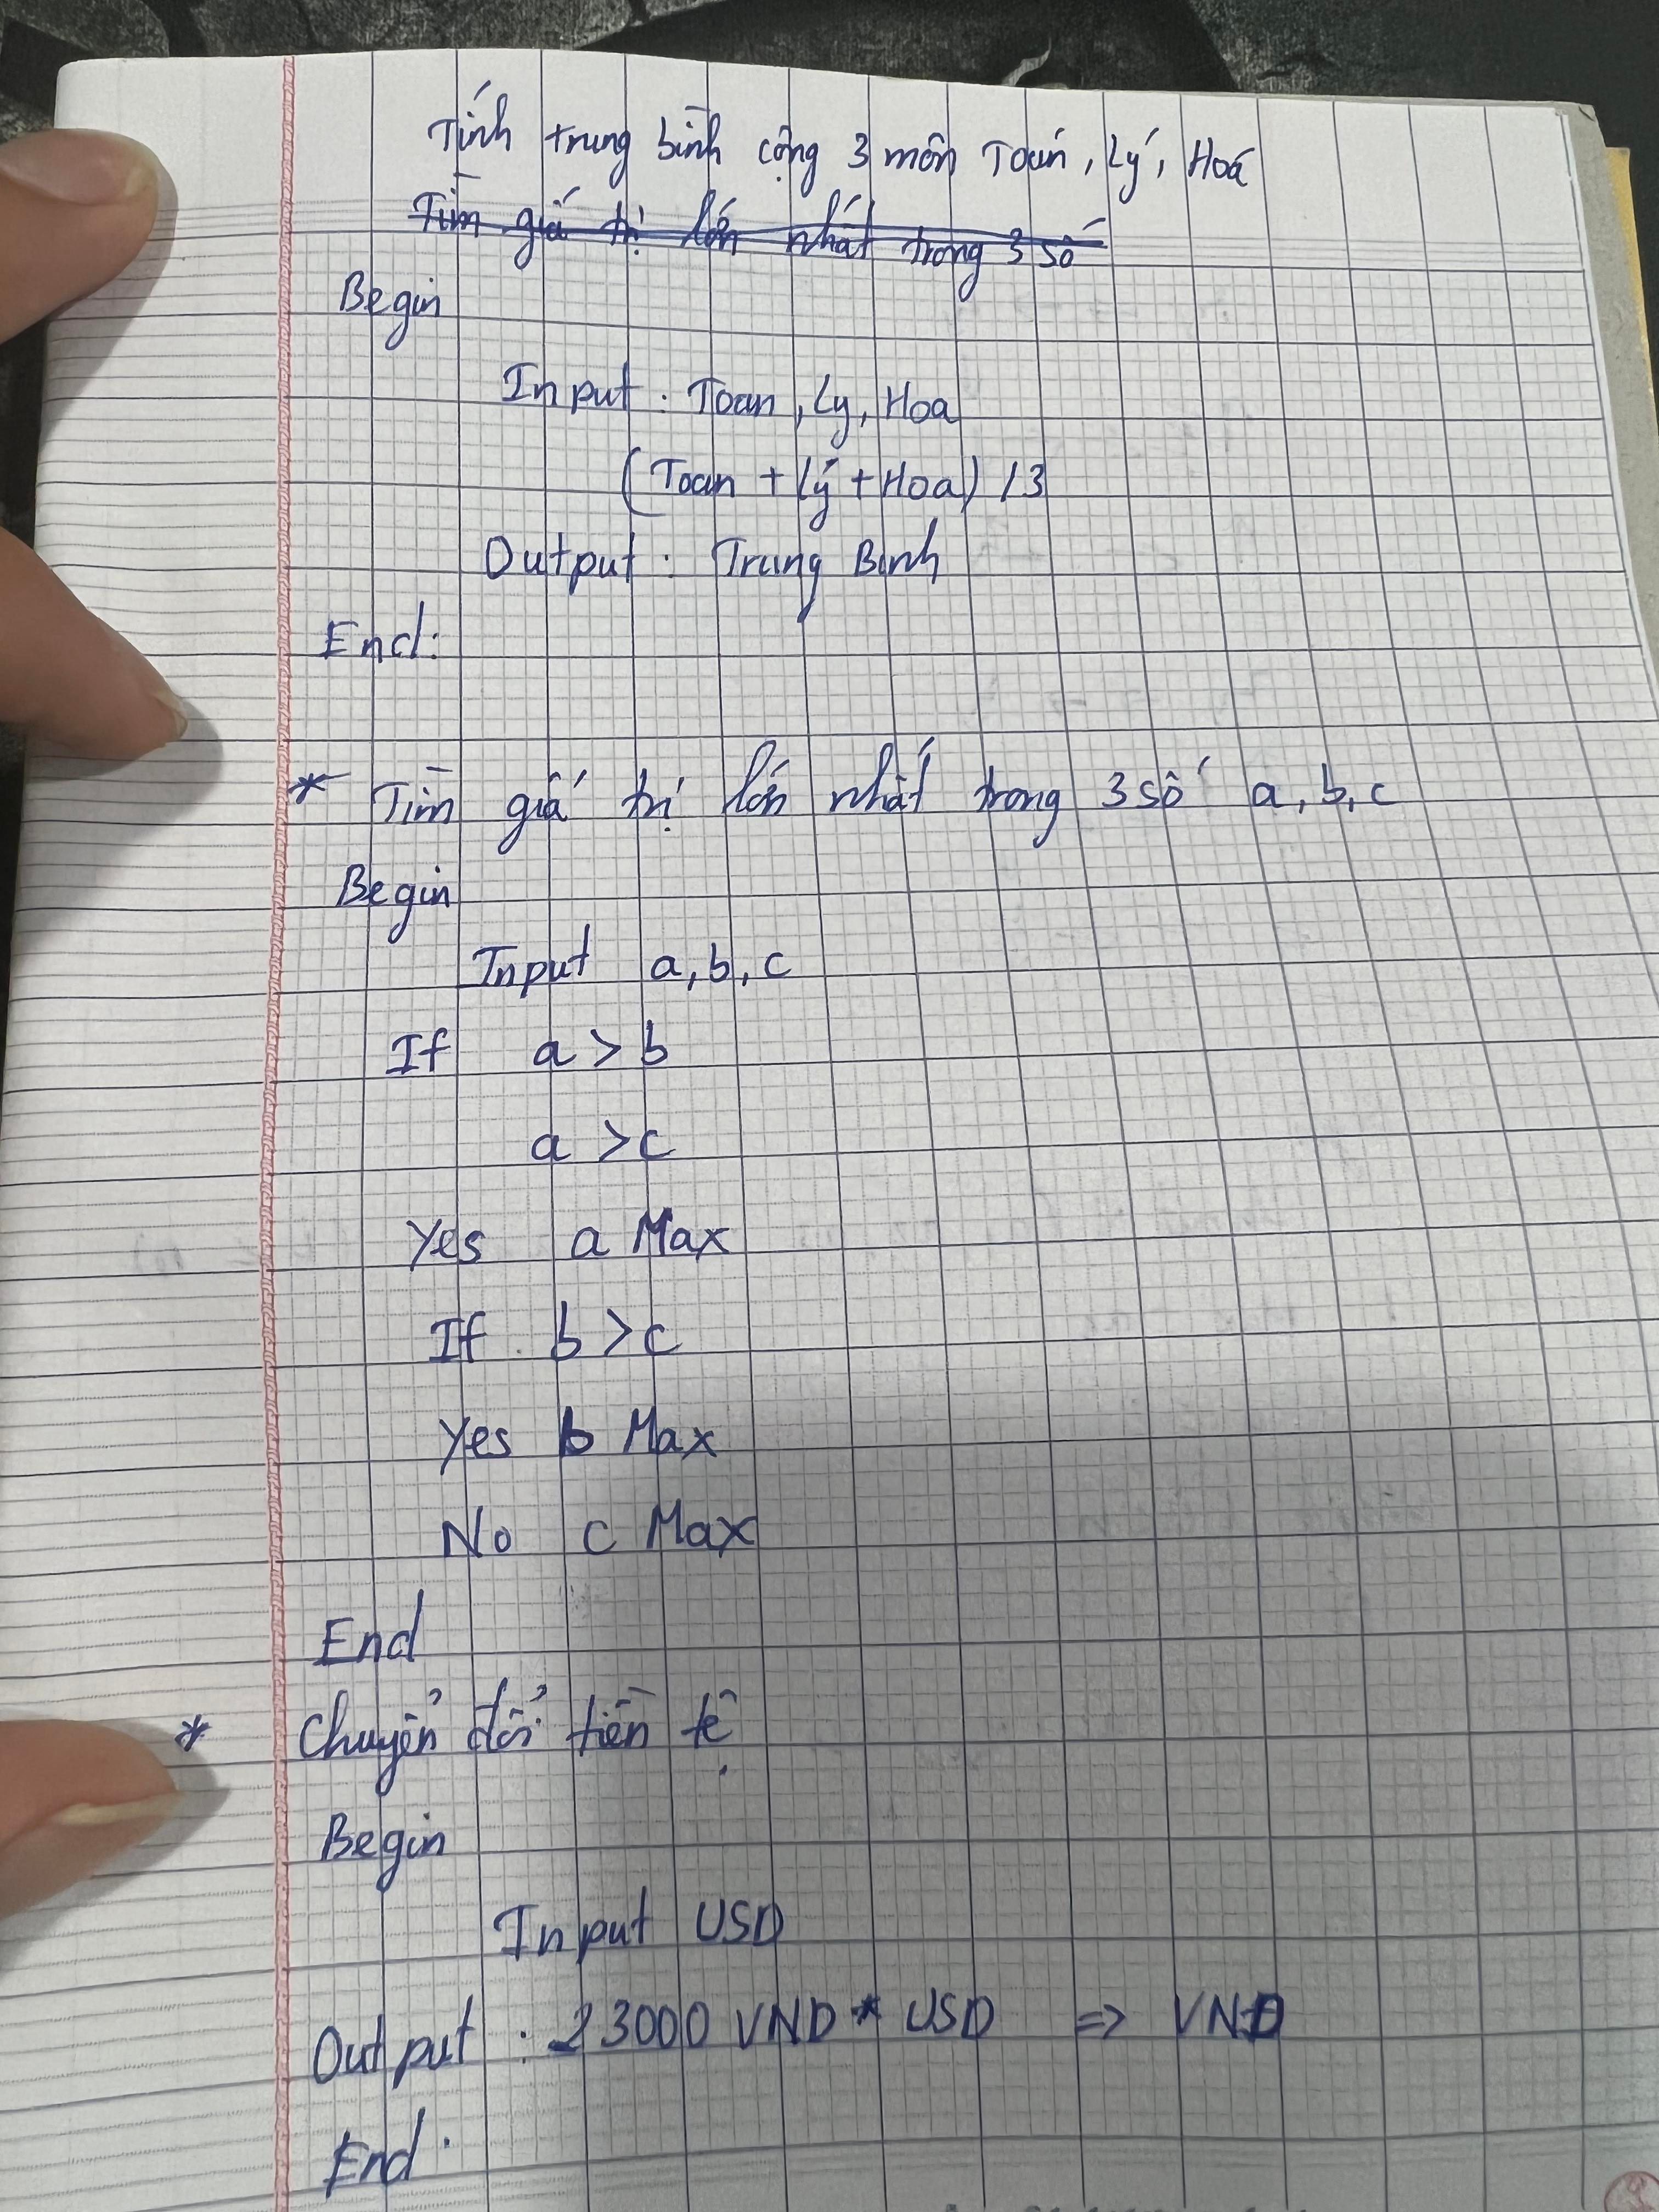 Tính trung bình cộng 3 môn Toán, Lý, Hoá
Tìm giá trị lớn nhất trong 3 số
Begin
Input : Toan, Ly, Hoa
(Toan + Lý + Hoa) / 3
Output : Trung Binh
End:
* Tìm giá trị lớn nhất trong 3 số a, b, c
Begin
Input a, b, c
If a > b
a > c
Yes a Max
If b > c
Yes b Max
No c Max
End
* Chuyển đổi tiền tệ
Begin
Input USD
Output : 23000 VND * USD => VND
End.